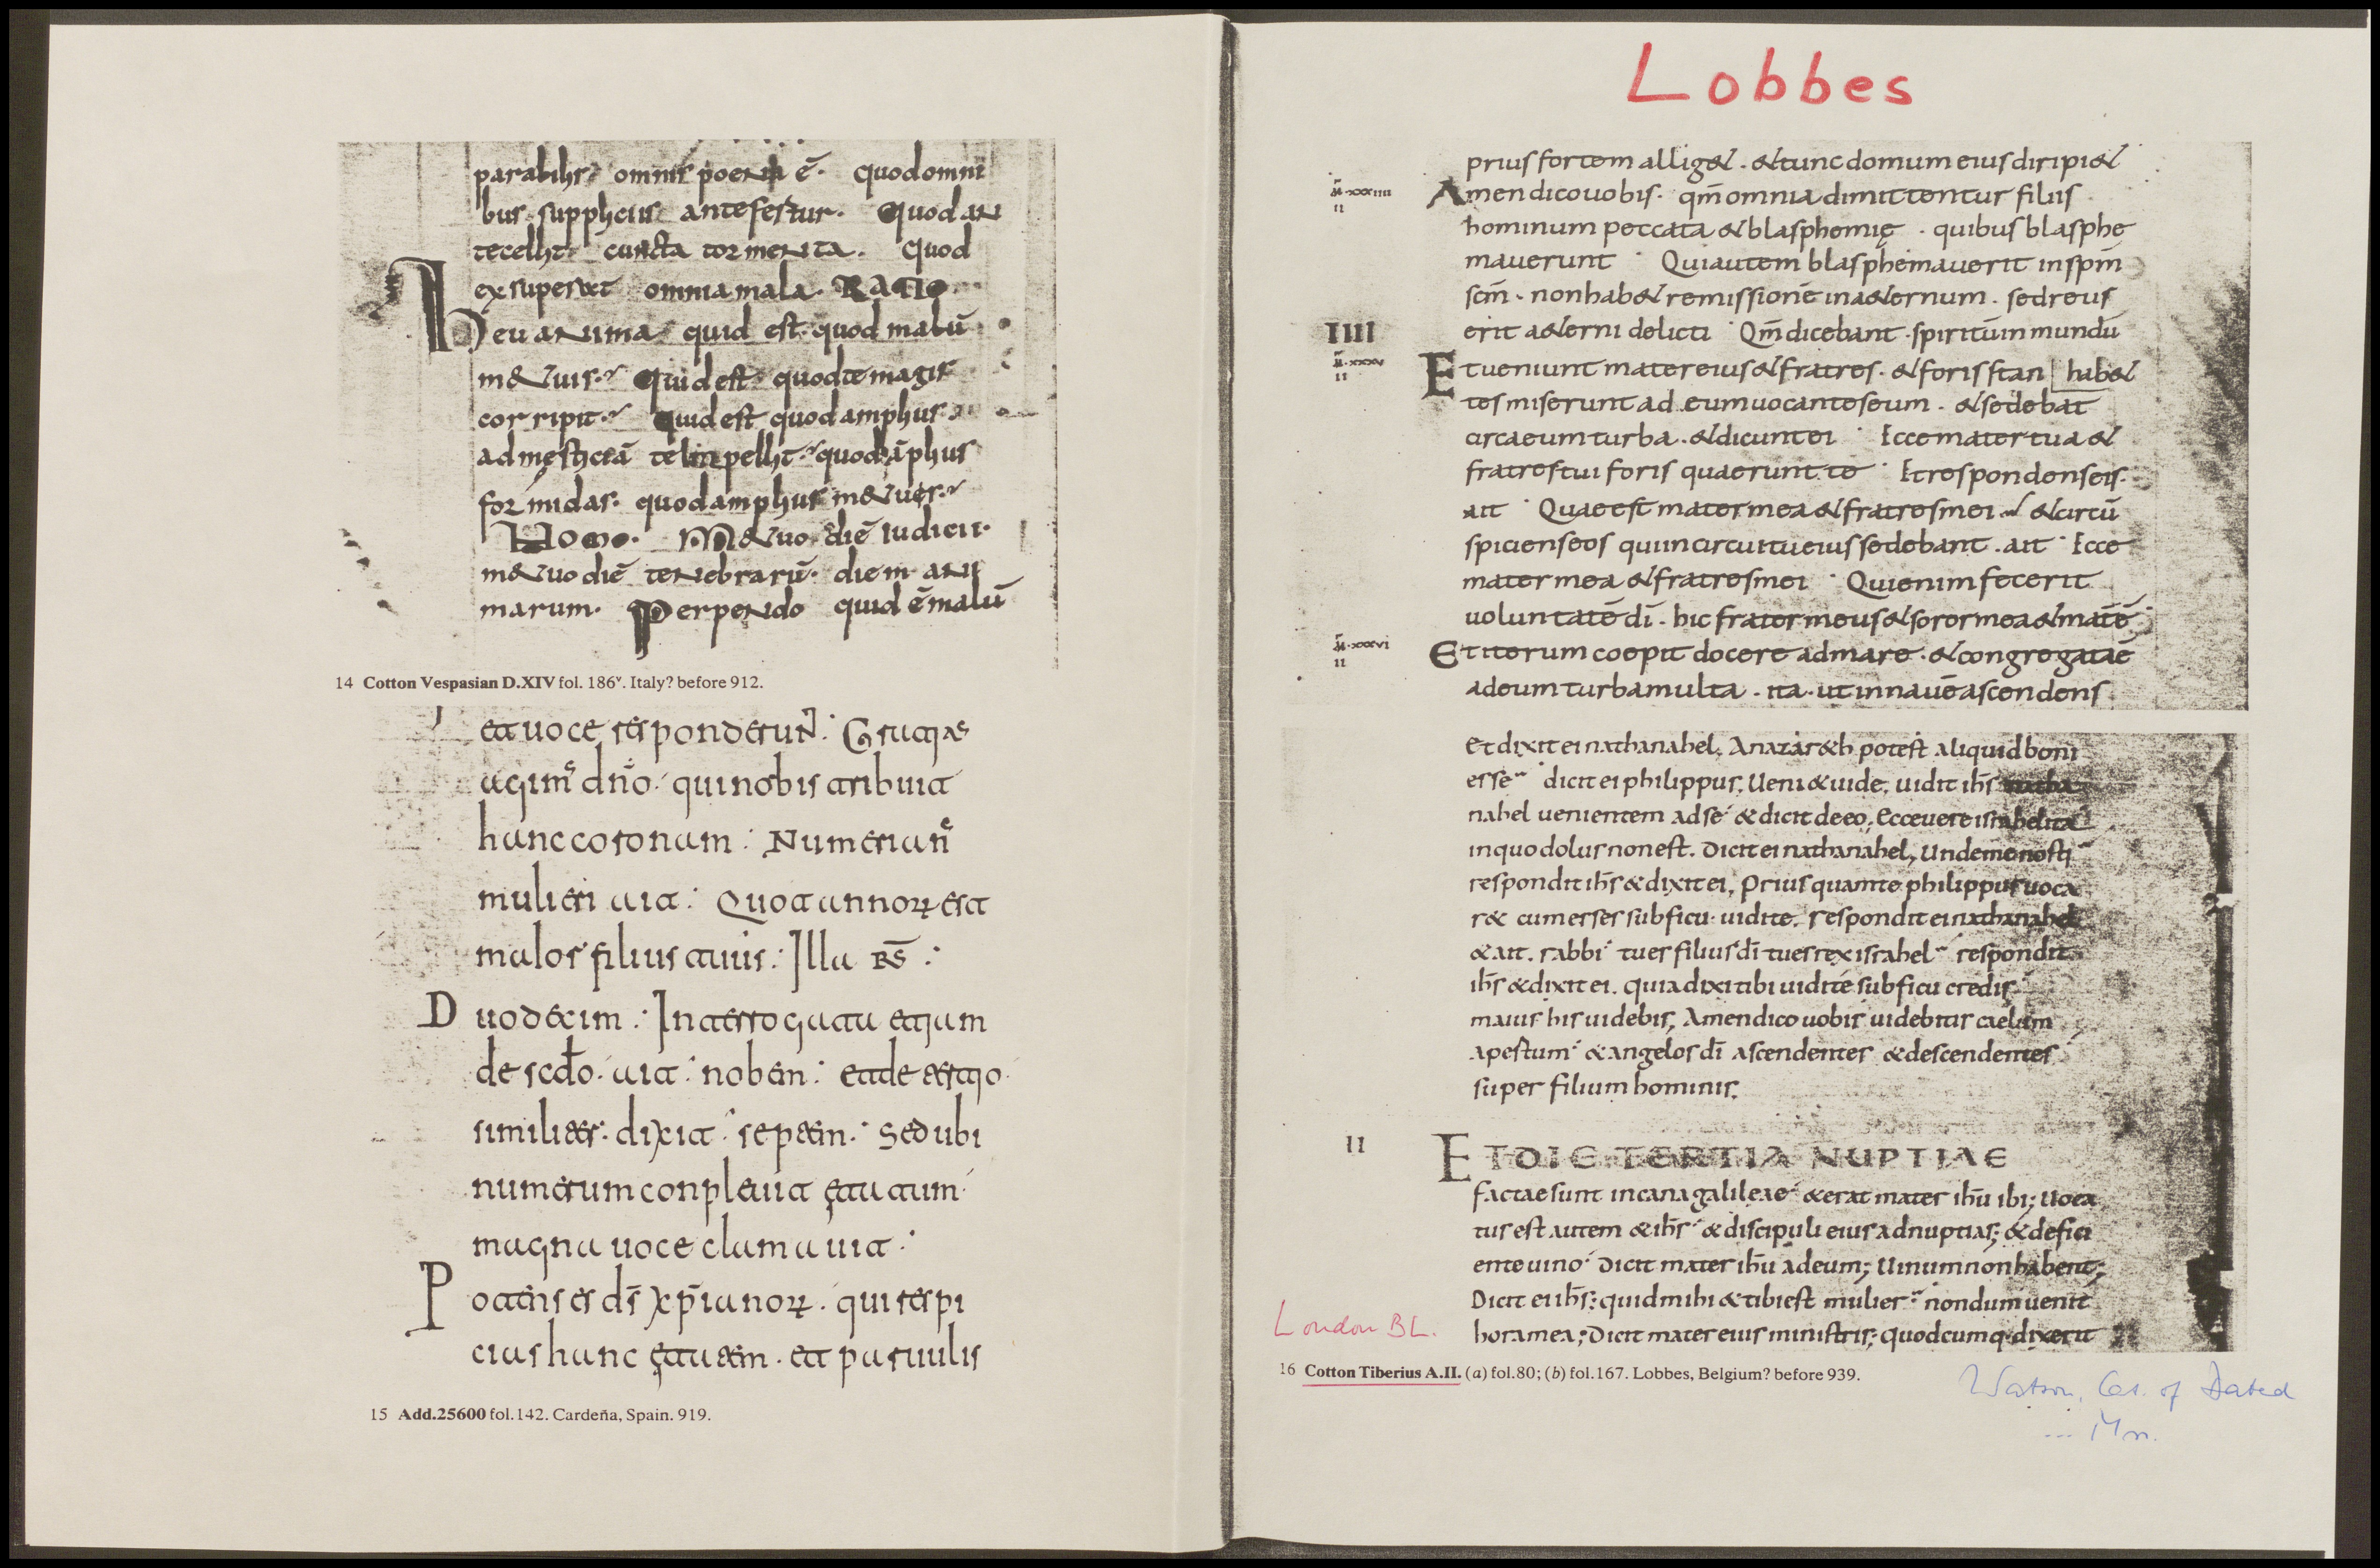 parabilis omnis poena ē. Quod omni
bus suppliciis antefertur. Quod an
tecellit cuncta tormenta. Quod
exsuperat omnia mala. RATIO.
Heu anima quid est quod malū
m&uis. Quid est quod te magis
corripit. Quid est quod amplius
ad męsticiā te impellit. quod āplius
formidas. quod amplius m&ues.
HOMO. M&uo diē iudicii.
m&uo diē tenebrarū. diem ani
marum. Perpendo quid ē malū
14 Cotton Vespasian D.XIV fol. 186v. Italy? before 912.
et uoce responderuñ: Gratias
agim dño. qui nobis tribuit
hanc coronam: Numerian
mulieri ait: Quot annorꝝ est
malor filius tuus: Illa R̄S:
Duodecim: Interrogata etiam
de scdo. ait: nobem: et de tertio
similiter. dixit: septem. Sed ubi
numerum conpleuit ętatum
magna uoce clamauit:
Potens es dś xp̄ianorꝝ. qui respi
cias hanc ętatem. et paruulis
15 Add.25600 fol.142. Cardeña, Spain. 919.
Lobbes
prius fortem allig&. & tunc domum eius diripi&
m̄.xxxiiii
ii
Amen dico uobis. qm̄ omnia dimittentur filiis
hominum peccata & blasphemię. quibus blasphe
mauerunt. Qui autem blasphemauerit in sp̄m
scm̄. non hab& remissionē in a&ernum. sed reus
IIII
erit a&erni delicti. Qm̄ dicebant. spiritū inmundū
m̄.xxxv
ii
Et ueniunt mater eius & fratres. & foris stan | hab&
tes miserunt ad eum uocantes eum. & sedebat
circa eum turba. & dicunt ei. Ecce mater tua &
fratres tui foris quaerunt te. Et respondens eis.
ait. Quae est mater mea & fratres mei. & circū
spiciens eos qui in circuitu eius sedebant. ait. Ecce
mater mea & fratres mei. Qui enim fecerit
uoluntatē dī. hic frater meus & soror mea & mat ē
m̄.xxxvi
ii
Et iterum coepit docere ad mare. & congregata ē
ad eum turba multa. ita. ut in nauē ascendens
Et dixit ei nathanahel. A nazar&h potest aliquid boni
esse dicit ei philippus. Ueni & uide. uidit ih̄s natha
nahel uenientem ad se & dicit de eo. Ecce uere israhelita
in quo dolus non est. Dicit ei nathanahel. Unde me nosti
respondit ih̄s & dixit ei. Prius quam te philippus uoca
r& cum esses sub ficu uidi te. respondit ei nathanahel
& ait. rabbi tu es filius dī tu es rex israhel respondit
ih̄s & dixit ei. quia dixi tibi uidi te sub ficu credis
maius his uidebis. Amen dico uobis uidebitis caelum
apertum & angelos dī ascendentes & descendentes
super filium hominis.
II
ET DIE TERTIA NUPTIAE
factae sunt in cana galileae & erat mater ih̄u ibi; Uoca
tus est autem & ih̄s & discipuli eius ad nuptias; & defici
ente uino Dicit mater ih̄u ad eum; Uinum non habent;
Dicit ei ih̄s: quid mihi & tibi est mulier nondum uenit
hora mea; Dicit mater eius ministris; quodcumq. dixerit
London BL.
16 Cotton Tiberius A.II. (a) fol.80; (b) fol.167. Lobbes, Belgium? before 939.
Watson, Cat. of Dated
... Mn.